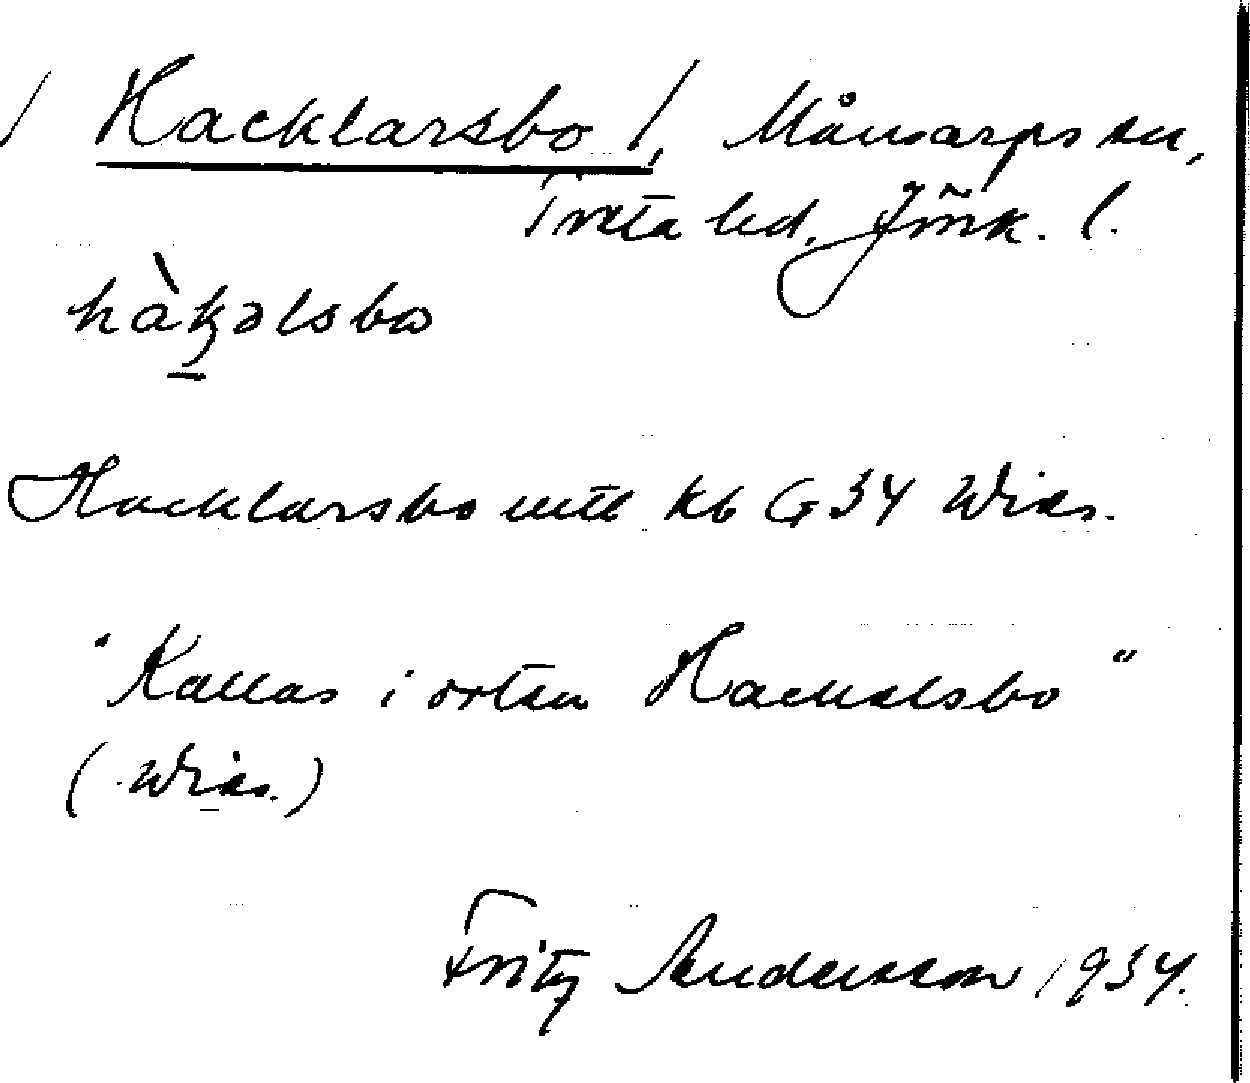 / Hacklarsbo /, Månsarps sn,
Tveta hd, Jönk. l.
hàkəlsbo
Hacklarsbo utt kb G34 Wiks.
"Kallas i orten Hackelsbo"
(Wiks.)
Fritz Andersson 1934.